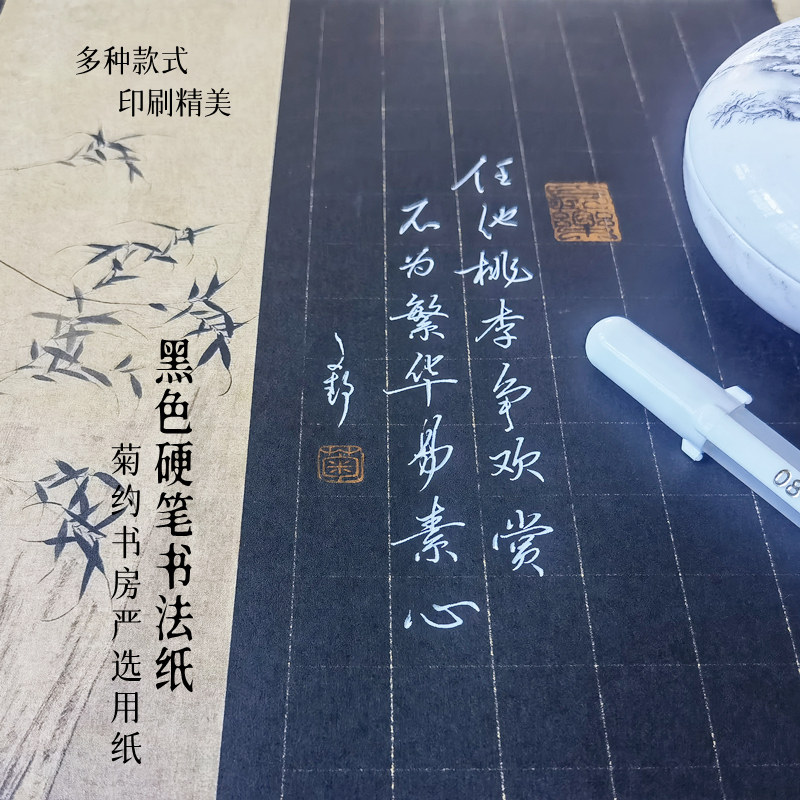 多种款式
印刷精美
黑色硬笔书法纸
菊约书房严选用纸
任他桃李争欢赏
不为繁华易素心
文静
菊
08